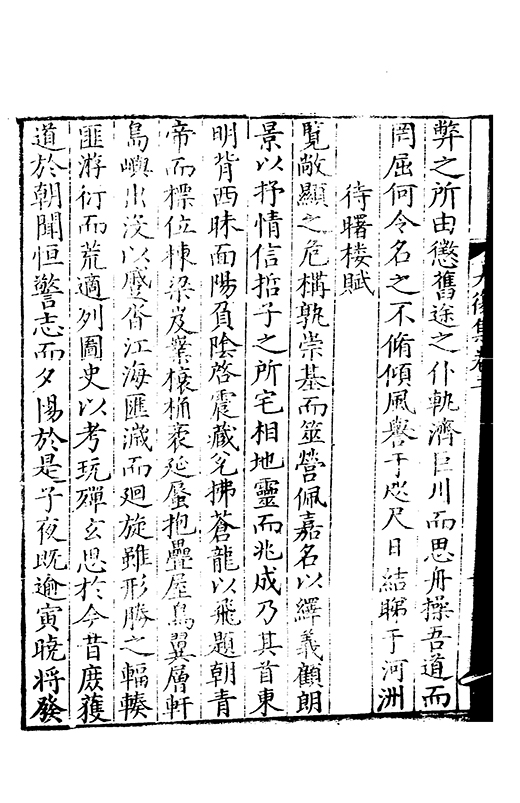 弊之所由懲舊途之仆軌濟巨川而思舟操吾道而
罔屈何令名之不脩傾風譽于咫尺日結睇于河洲
待曙楼賦
覽敞顯之危構孰崇基而筮營佩嘉名以繹義顧朗
景以抒情信哲子之所宅相地靈而兆成乃其首東
明背西昧面陽負陰啓震藏兊拂蒼龍以飛題朝青
帝而標位棟梁岌業榱桷袤延蜃抱疊屋鳥翼層軒
島嶼出没以蹙沓江海匯瀦而廻旋雖形勝之輻輳
匪游衍而荒適列圖史以考玩殫玄思於今昔庻獲
道於朝聞恒警志而夕惕於是子夜既逾寅曉将發
集卷二